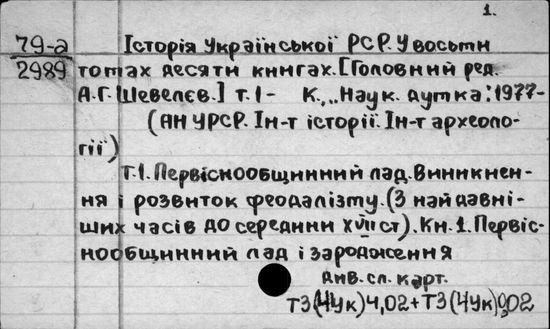 1.
79-а Історія Української РСР. У восьми
2989 томах десяти книгах. [Головний ред.
А.Г. Шевелєв.] т.1- К., „Наук. думка: 1977-
(АН УРСР. Ін-т історії. Ін-т археоло-
гії)
Т.1. Первіснообщинний лад. Виникнен-
ня і розвиток феодалізму. (З найдавні-
ших часів до середини XVII ст). Кн. 1. Первіс-
нообщинний лад і зародження
див. сл. карт.
Т3(4Ук)4,02+Т3(4Ук)0,02